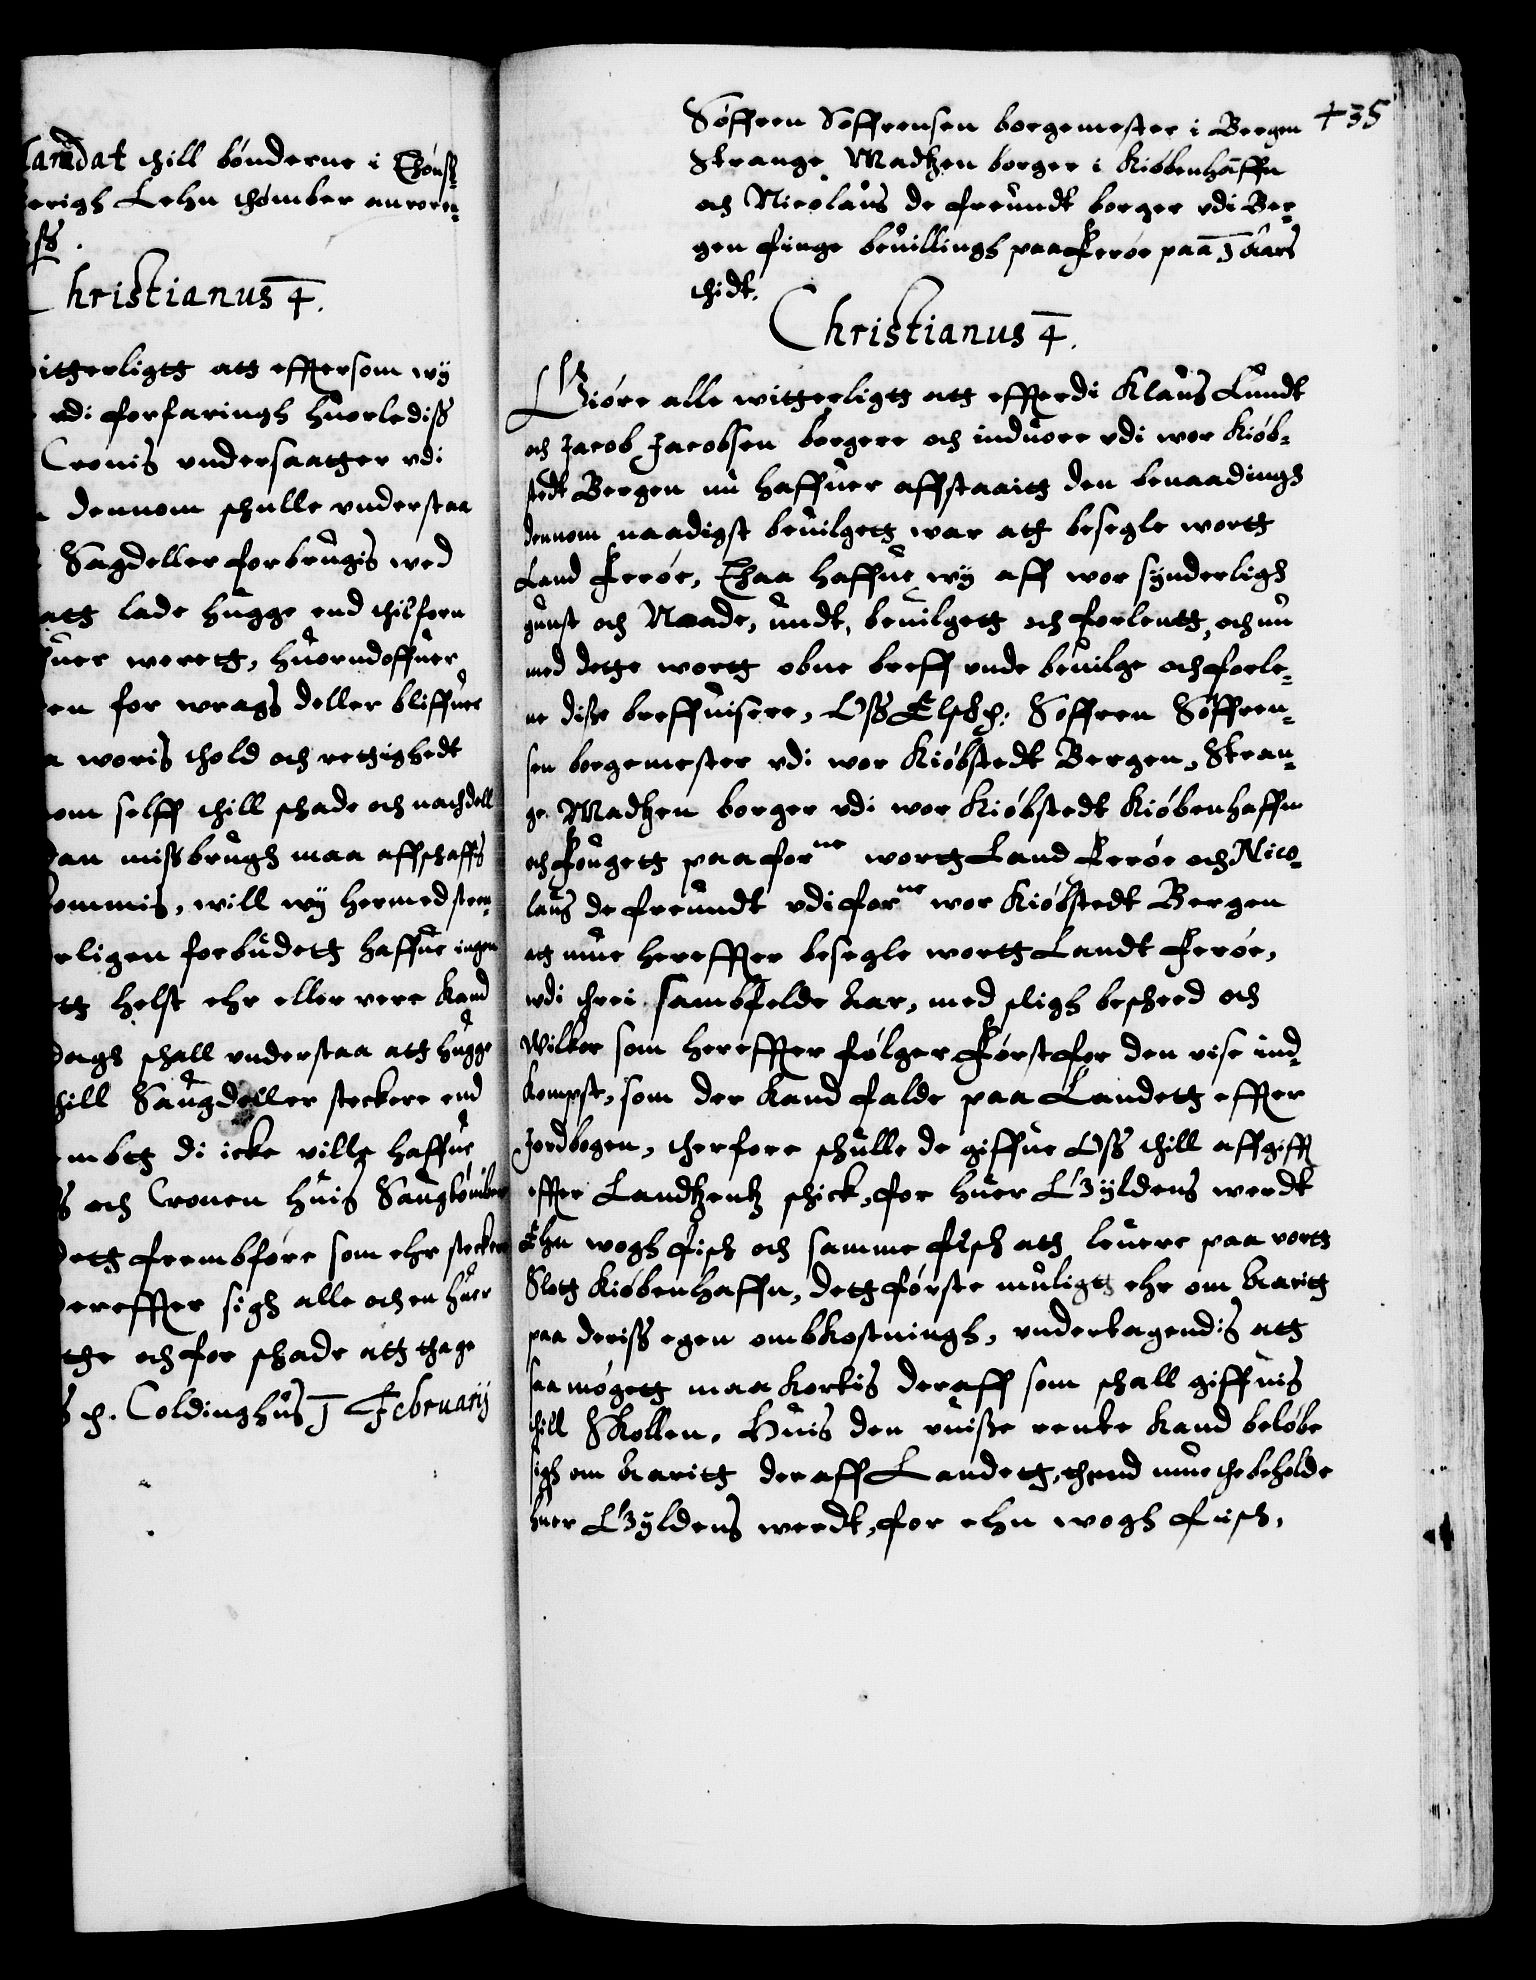 dat thill bønderne i Thønsz-
erigh Lehn thømber anwen-
Christianus 4.
witterligtt att effttersom wij
vdi forfaringh huorlediss
Cronis vndersaatter vdi
dennom schulle vnderstaa
Sagdeller forbrugis wed
att lade hugge end thilforn
werett, huorudoffuer
for wrags deller bliffuer
woris thold och rettighedt
selff thill schade och nachdell
missbrugh maa affschaffis
will wij hermed stren-
forbudett haffue ingen
helst ehr eller vere kand
schall vnderstaa att hugge
thill Saugdeller sterkere end
di icke ville haffue
och Cronen huis Saugtømber
frembføre som ehr sterkere
dereffter sigh alle och en huer
och for schade att thage
Coldinghus J Februarij
435
Søffren Søffrensen borgemester i Bergen
Strange Madtzen borger i Kiøbenhaffn
och Nicolaus de freundt borger vdi Ber-
gen finge beuillingh paa Ferøe paa 3 Aars
thidt.
Christianus 4.
Giøre alle witterligtt att effterdi Klaus Lundt
och Jacob Jacobsen borgere och induore vdi wor Kiøb-
stedt Bergen nu haffuer affstaaitt den benaadingh
dennom naadigst beuilgett war att besegle wortt
Land Ferøe, Thaa haffue wij aff wor synderligh
gunst och Naade, undt, beuilgett och forlentt, och nu
med dette wortt obne breff vnde beuilge och forle-
ne disse breffuisere, Oss Elsch: Søffren Søffren-
sen borgemester vdi wor Kiøbstedt Bergen, Stran-
ge Madtzen borger vdi wor Kiøbstedt Kiøbenhaffn
och Fougett paa forne wortt Land Ferøe och Nico-
laus de freundt vdi forne wor Kiøbstedt Bergen
att mue hereffter besegle wortt Landt Ferøe,
vdi threi sambfelde Aar, med sligh bescheed och
Wilkor som hereffter følger Først for den vise ind-
kompst, som der kand falde paa Landett effter
Jordbogen, therfore schulle de giffue Oss thill affgifft
effter Landtzens schick, for huer Gyldens werdt
Ehn wogh fisch och samme fisch att leuere paa vortt
Slott Kiøbenhaffn, dett første muligt ehr om Aaritt
paa deriss egen ombkostningh, undertagendis att
saa møgett maa kortis deraff som schall giffuis
thill Skollen, Huis den uuisse rente kand beløbe
sigh om Aaritt deraff Landett, thend mue the beholde
huer Gyldens werdt, for ehn wogh fisch,